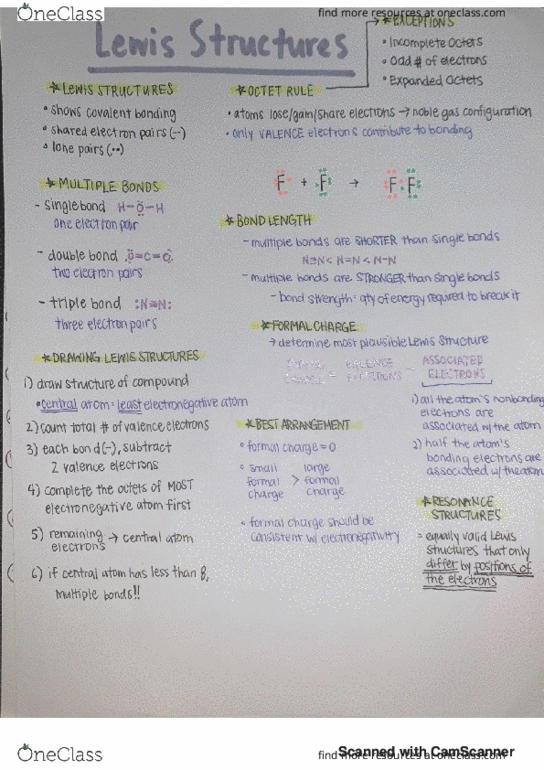 OneClass
find more resources at oneclass.com
Lewis Structures
*EXCEPTIONS
• Incomplete Octets
• Odd # of electrons
• Expanded Octets
*LEWIS STRUCTURES
• shows covalent bonding
• shared electron pairs (-)
• lone pairs (••)
*OCTET RULE
• atoms lose/gain/share electrons → noble gas configuration
• only VALENCE electrons contribute to bonding
F + F → F F
*MULTIPLE BONDS
- single bond H-Ö-H
one electron pair
- double bond :Ö=C=Ö:
two electron pairs
- triple bond :N≡N:
three electron pairs
*BOND LENGTH
- multiple bonds are SHORTER than single bonds
N≡N < N=N < N-N
- multiple bonds are STRONGER than single bonds
- bond strength: qty of energy required to break it
*FORMAL CHARGE
→ determine most plausible Lewis Structure
FORMAL CHARGE = VALENCE ELECTRONS - ASSOCIATED ELECTRONS
1) all the atom's nonbonding
electrons are
associated w/ the atom
2) half the atom's
bonding electrons are
associated w/ the atom
*DRAWING LEWIS STRUCTURES
1) draw structure of compound
• central atom: least electronegative atom
2) count total # of valence electrons
3) each bond (-), subtract
2 valence electrons
4) complete the octets of MOST
electronegative atom first
5) remaining electrons → central atom
6) if central atom has less than 8,
multiple bonds!!
*BEST ARRANGEMENT
• formal charge = 0
• small formal charge > large formal charge
• formal charge should be
consistent w/ electronegativity
*RESONANCE
STRUCTURES
• equally valid Lewis
structures that only
differ by positions of
the electrons
OneClass
find more resources at oneclass.com
Scanned with CamScanner